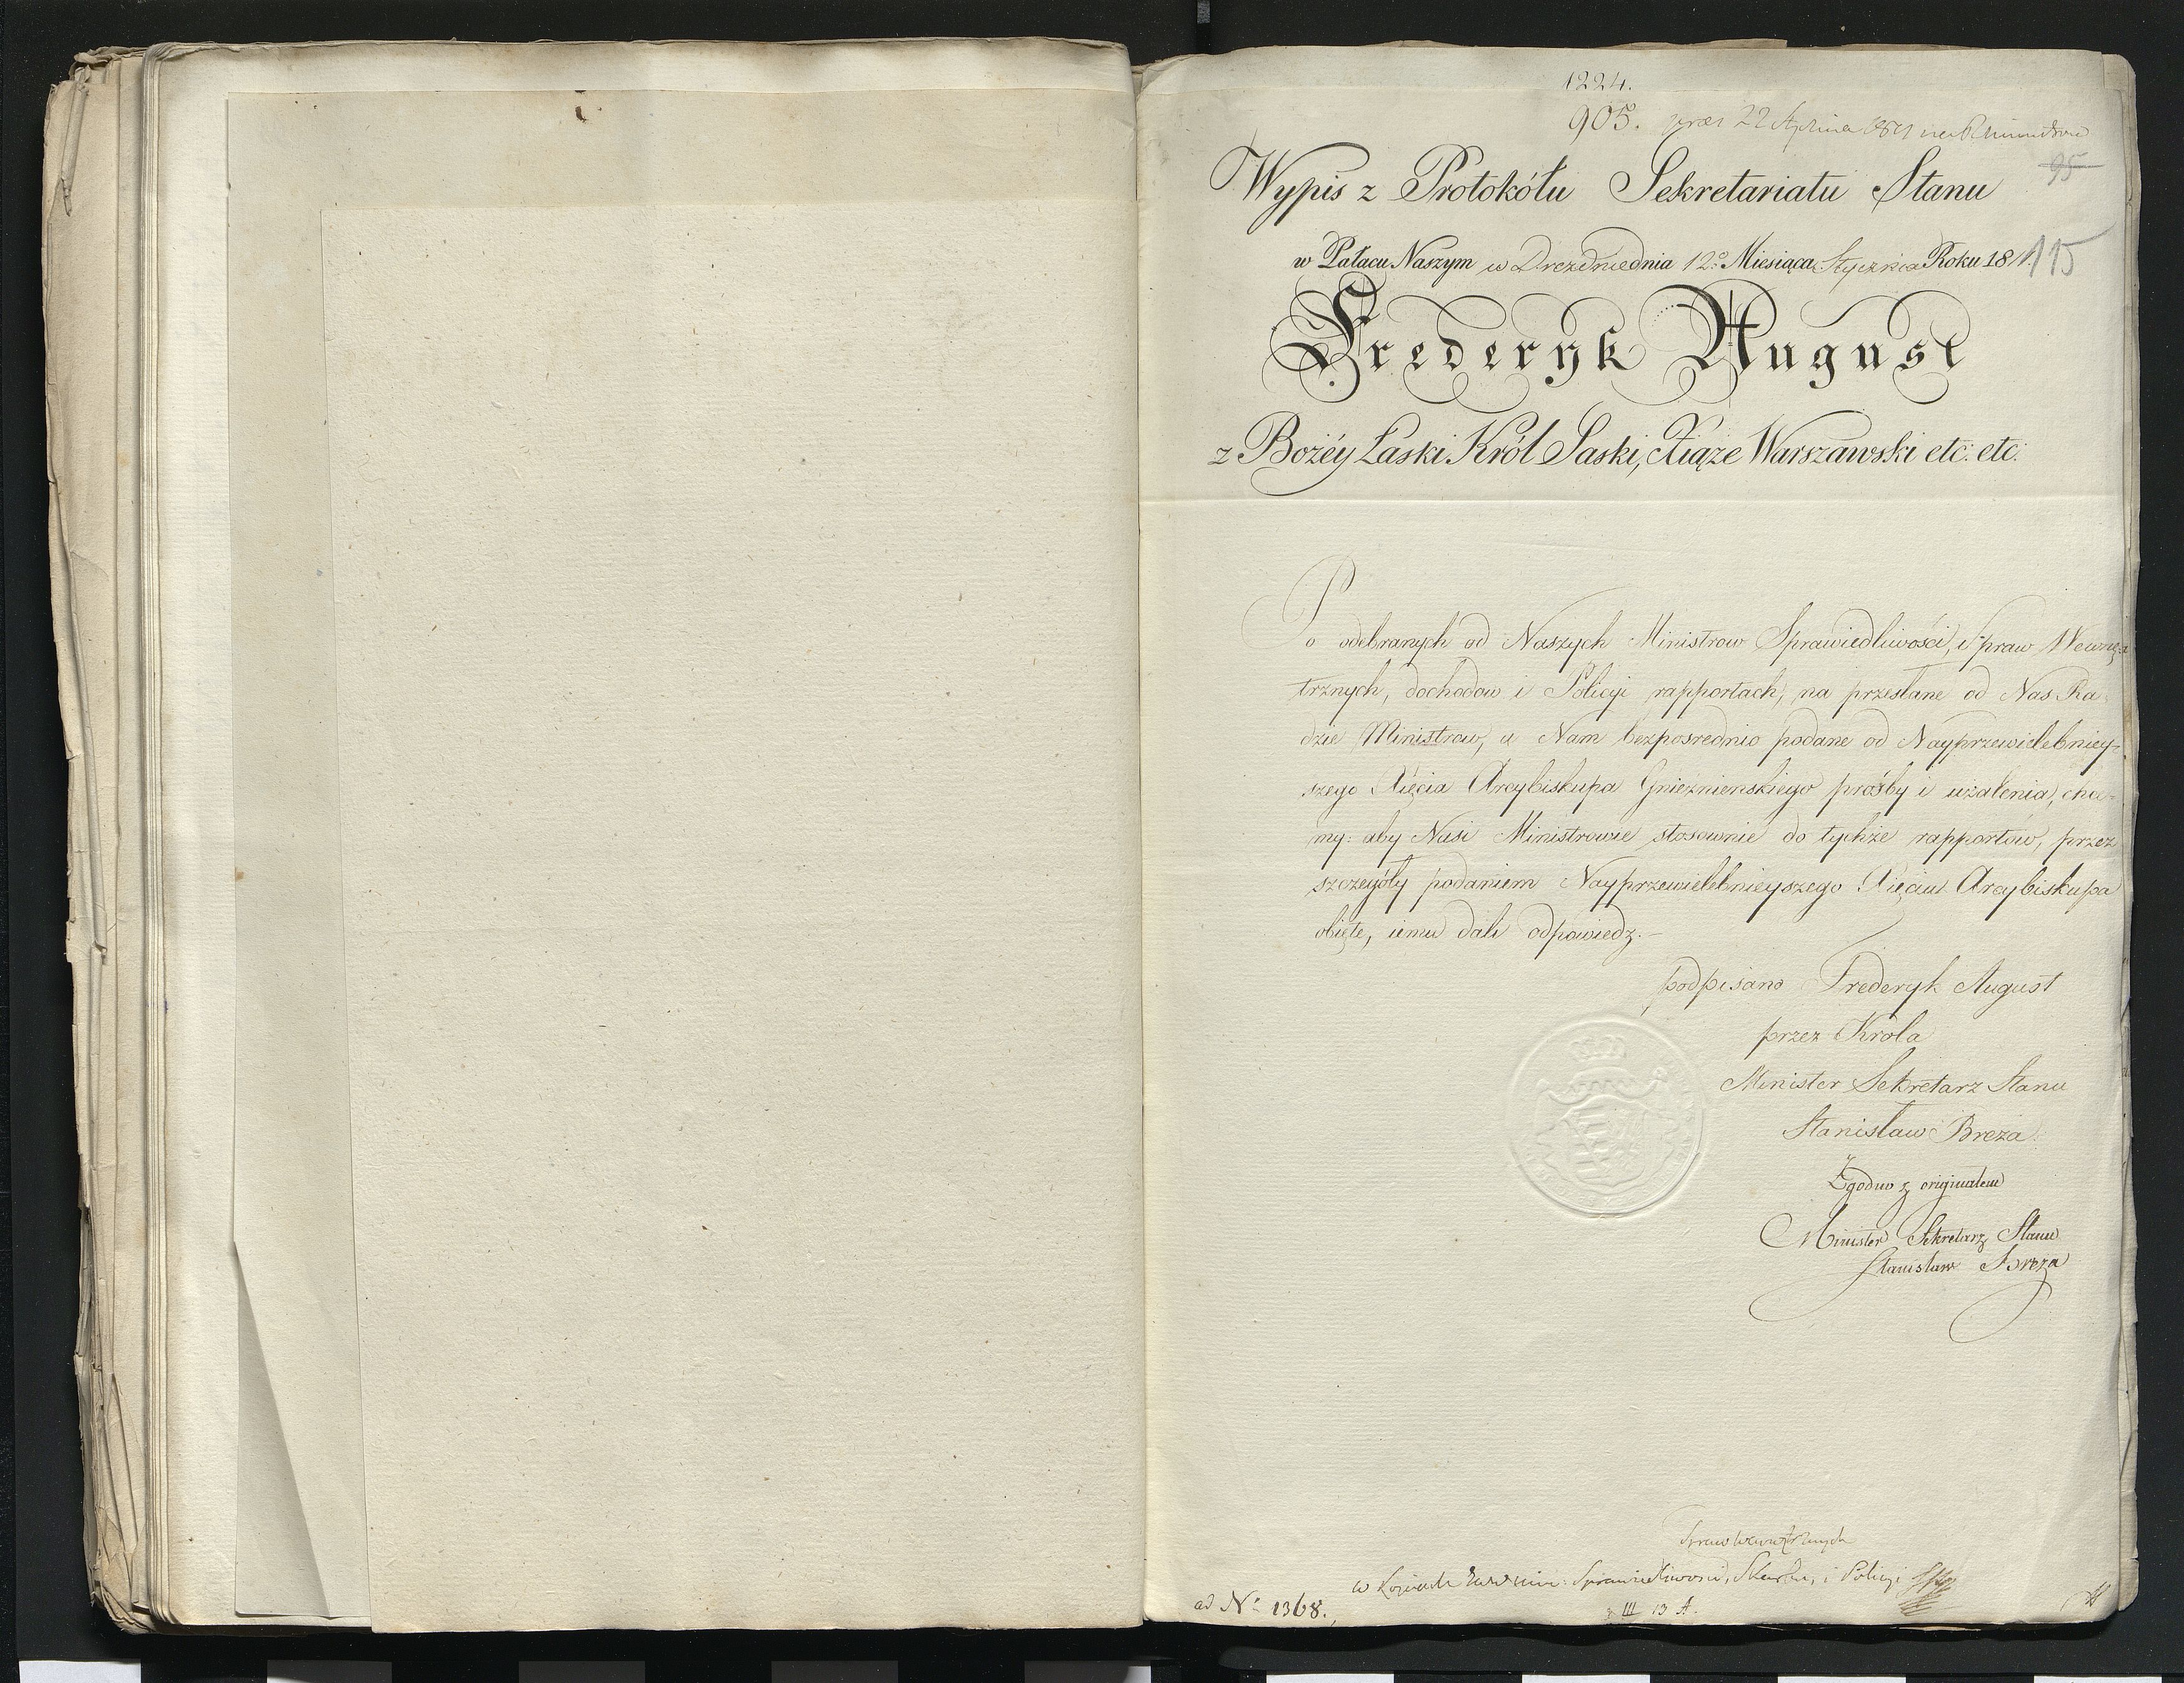 1224.
905. 22 Stycznia
95
Wypis z Protokółu Sekretariatu Stanu
w Pałacu Naszym w Dreznie dnia 12º Miesiąca Stycznia Roku 1811.
115
Frederyk August
z Bożéy Łaski Król Saski, Xiąże Warszawski etc: etc:
Po odebranych od Naszych Ministrow Sprawiedliwości, Spraw Wewnę-
trznych, dochodow i Policyi rapportach, na przesłane od Nas Ra-
dzie Ministrow, a Nam bezposrednio podane od Nayprzewielebniey-
szego Xięcia Arcybiskupa Gnieznienskiego prośby i użalenia, chce-
my: aby Nasi Ministrowie stosownie do tychże rapportów, przez
szczegóły podaniem Nayprzewielebnieyszego Xięcia Arcybiskupa
obięte, iemu dali odpowiedz.—
podpisano Frederyk August
przez Krola
Minister Sekretarz Stanu
Stanisław Breza.
Zgodno z originałem
Minister Sekretarz Stanu
Stanisław Breza
Spraw Wewnętrznych
Sprawiedliwosci, Skarbu, i Policyi
ad Nº 1368.
III 13 A.